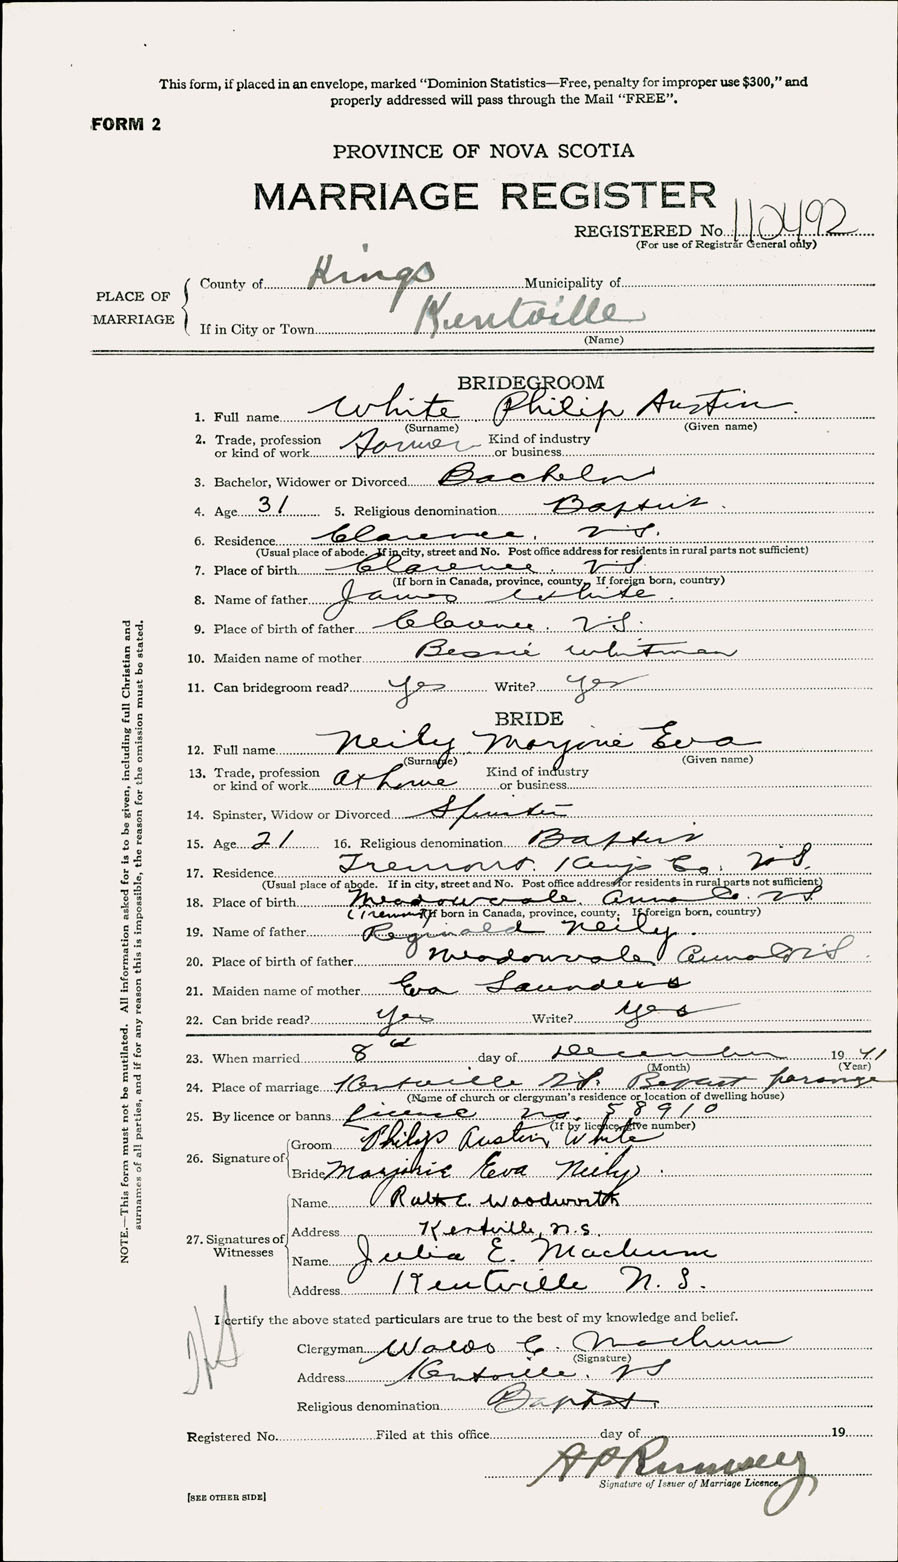 This form, if placed in an envelope, marked “Dominion Statistics—Free, penalty for improper use $300,” and
properly addressed will pass through the Mail “FREE”.
FORM 2
PROVINCE OF NOVA SCOTIA
MARRIAGE REGISTER
REGISTERED No. 110492
(For use of Registrar General only)
PLACE OF MARRIAGE
County of Kings Municipality of
If in City or Town Kentville
(Name)
BRIDEGROOM
1. Full name White Philip Austin
(Surname) (Given name)
2. Trade, profession or kind of work Farmer Kind of industry or business
3. Bachelor, Widower or Divorced Bachelor
4. Age 31 5. Religious denomination Baptist
6. Residence Clarence. N.S.
(Usual place of abode. If in city, street and No. Post office address for residents in rural parts not sufficient)
7. Place of birth Clarence. N.S.
(If born in Canada, province, county. If foreign born, country)
8. Name of father James White
9. Place of birth of father Clarence. N.S.
10. Maiden name of mother Bessie Whitman
11. Can bridegroom read? yes Write? yes
BRIDE
12. Full name Neily Marjorie Eva
(Surname) (Given name)
13. Trade, profession or kind of work at home Kind of industry or business
14. Spinster, Widow or Divorced Spinster
15. Age 21 16. Religious denomination Baptist
17. Residence Tremont. Kings Co. N.S.
(Usual place of abode. If in city, street and No. Post office address for residents in rural parts not sufficient)
18. Place of birth Meadowvale. Anna Co. N.S.
(Tremont) (If born in Canada, province, county. If foreign born, country)
19. Name of father Reginald Neily.
20. Place of birth of father Meadowvale Anna Co N S
21. Maiden name of mother Eva Saunders
22. Can bride read? yes Write? yes
23. When married 8th day of December 1941
(Month) (Year)
24. Place of marriage Kentville N.S. Baptist parsonage
(Name of church or clergyman's residence or location of dwelling house)
25. By licence or banns license no. 58910
(If by licence, give number)
26. Signature of
Groom Philip Austin White
Bride Marjorie Eva Neily.
27. Signatures of Witnesses
Name C. Woodworth
Address Kentville, N.S.
Name Julia E. Machum
Address Kentville N. S.
I certify the above stated particulars are true to the best of my knowledge and belief.
Clergyman Waldo C. Machum
(Signature)
Address Kentville. N S
Religious denomination Baptist.
Registered No. Filed at this office day of 19
A P Rumsey
Signature of Issuer of Marriage Licence.
[SEE OTHER SIDE]
NOTE.—This form must not be mutilated. All information asked for is to be given, including full Christian and
surnames of all parties, and if for any reason this is impossible, the reason for the omission must be stated.